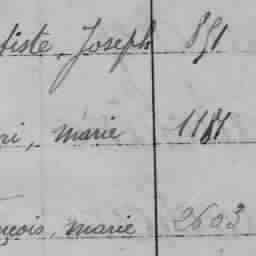 tiste Joseph 891
ri, marie 1181
nçois, marie 2603